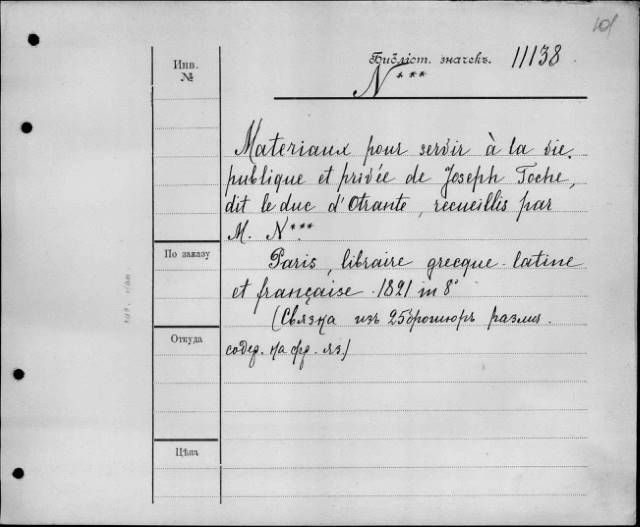 101
Инв.
№
Библіот. значекъ. 11138
N***
Materiaux pour servir à la vie
publique et privée de Joseph Foche,
dit le duc d'Otrante, recueillis par
M. N***
По заказу
Paris, libraire grecque-latine
et française 1821 in 8°
(Связка изъ 25 брошюръ различ.
Откуда
содер. на фр. яз.)
Цѣна